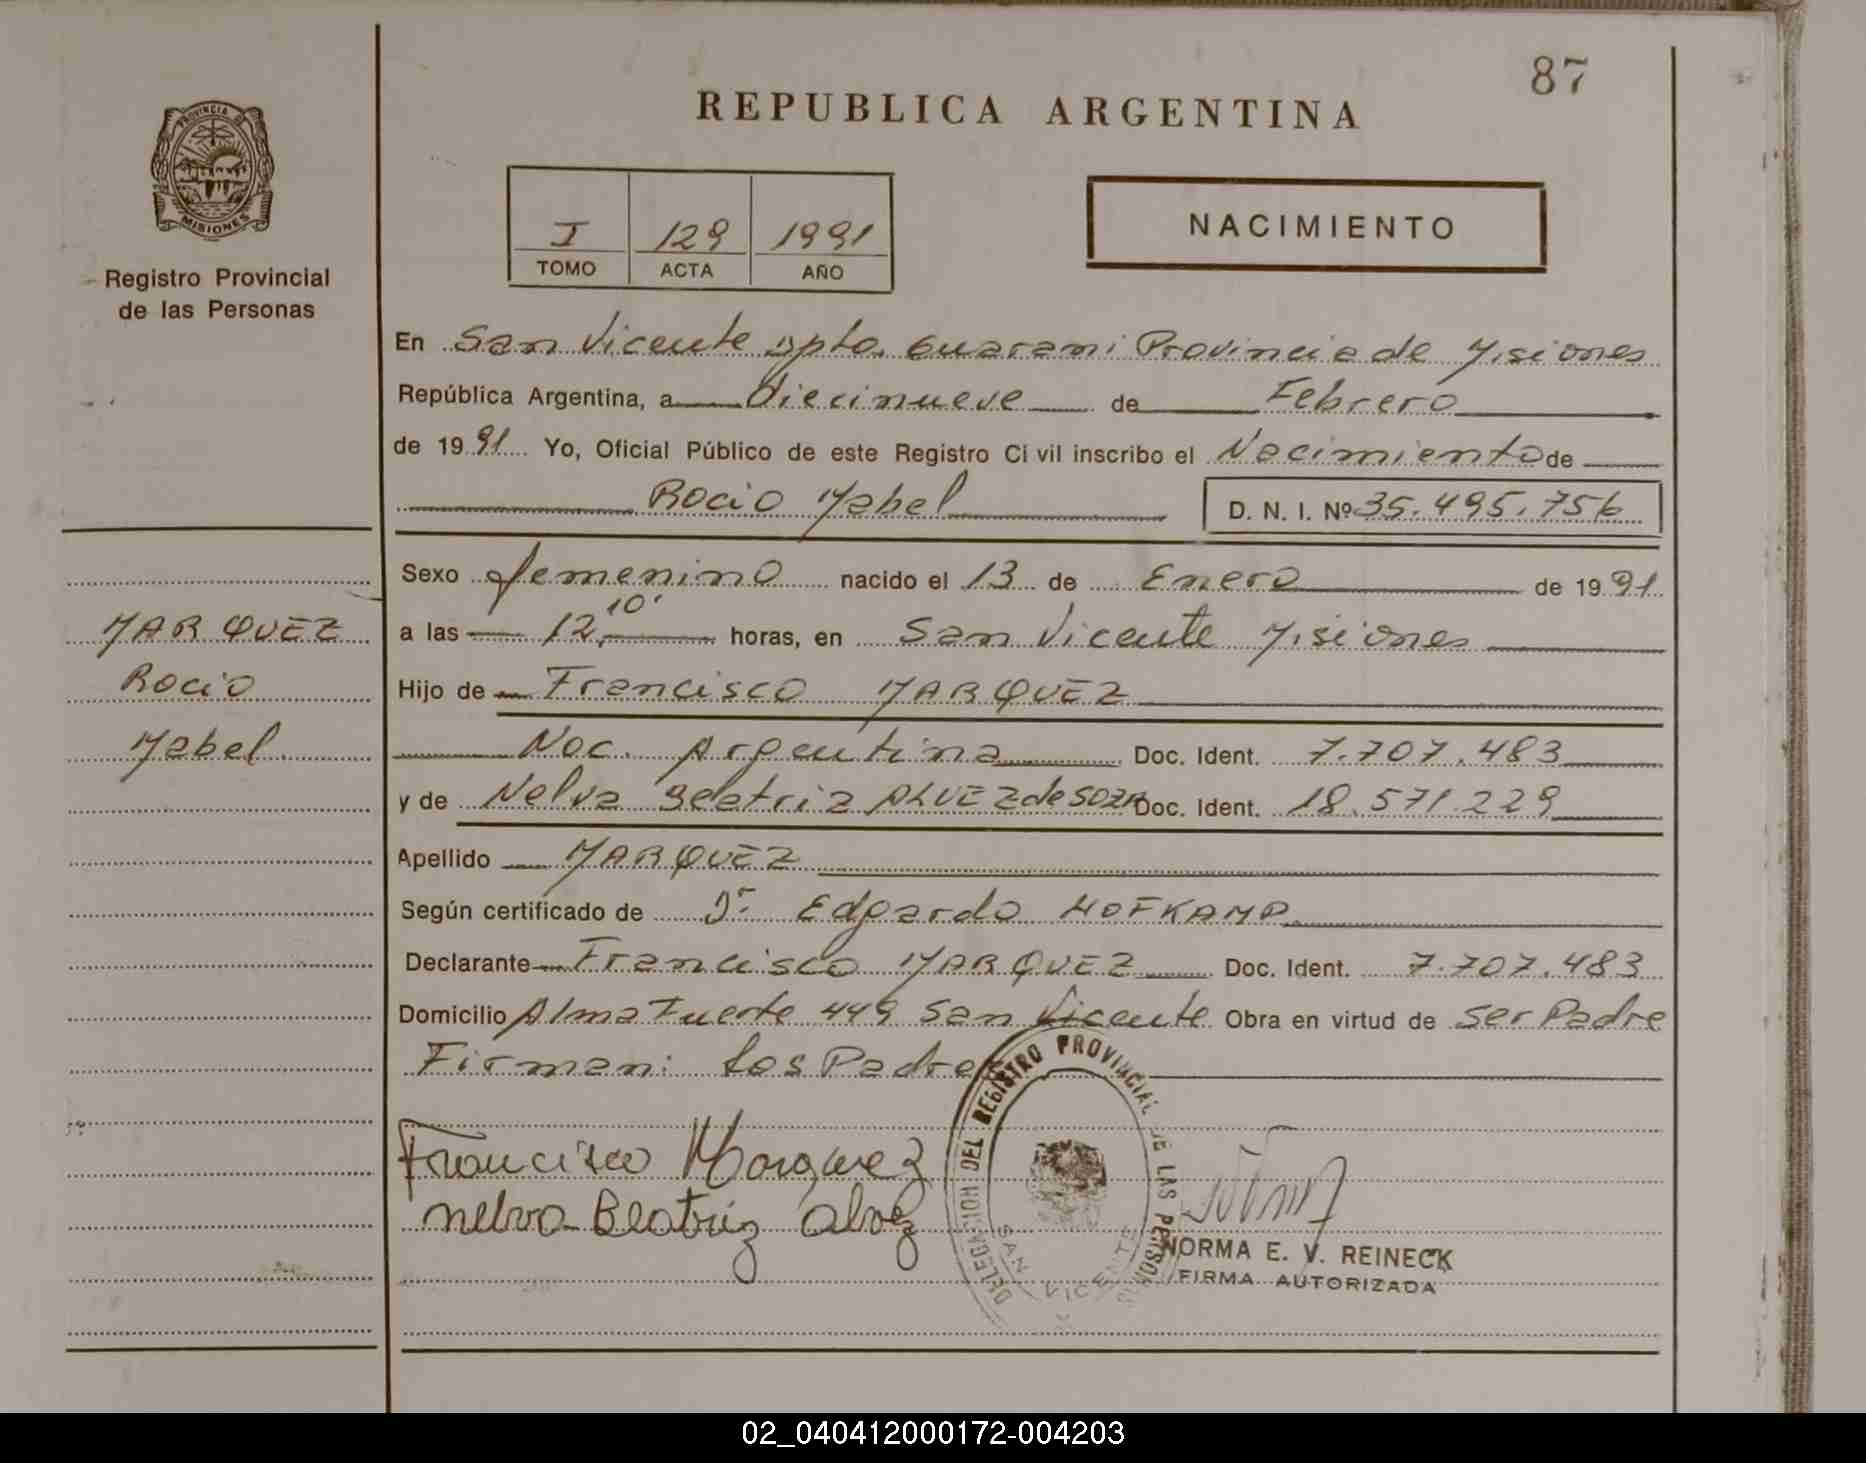 87
REPUBLICA ARGENTINA
PROVINCIA DE
MISIONES
Registro Provincial
de las Personas
I 129 1991
TOMO ACTA AÑO
NACIMIENTO
En San Vicente Dpto. Guarani Provincia de Misiones
República Argentina, a Diecinueve de Febrero
de 1991 Yo, Oficial Público de este Registro Civil inscribo el Nacimiento de
Rocio Mabel D. N. I. Nº 35.495.756
Sexo femenino nacido el 13 de Enero de 1991
a las 12,10' horas, en San Vicente Misiones
Hijo de Francisco MARQUEZ
Nac. Argentina Doc. Ident. 7.707.483
y de Nelva Beatriz ALVEZ de SOZA Doc. Ident. 18.571.229
Apellido MARQUEZ
Según certificado de Dr. Edgardo HOFKAMP
Declarante Francisco MARQUEZ Doc. Ident. 7.707.483
Domicilio Alma Fuerte 449 San Vicente Obra en virtud de ser Padre
Firman: los Padres
MARQUEZ
Rocio
Mabel
Francisco Marquez
nelva Beatriz alvez
DELEGACION DEL REGISTRO PROVINCIAL DE LAS PERSONAS
SAN VICENTE
NORMA E. V. REINECK
FIRMA AUTORIZADA
02_040412000172-004203